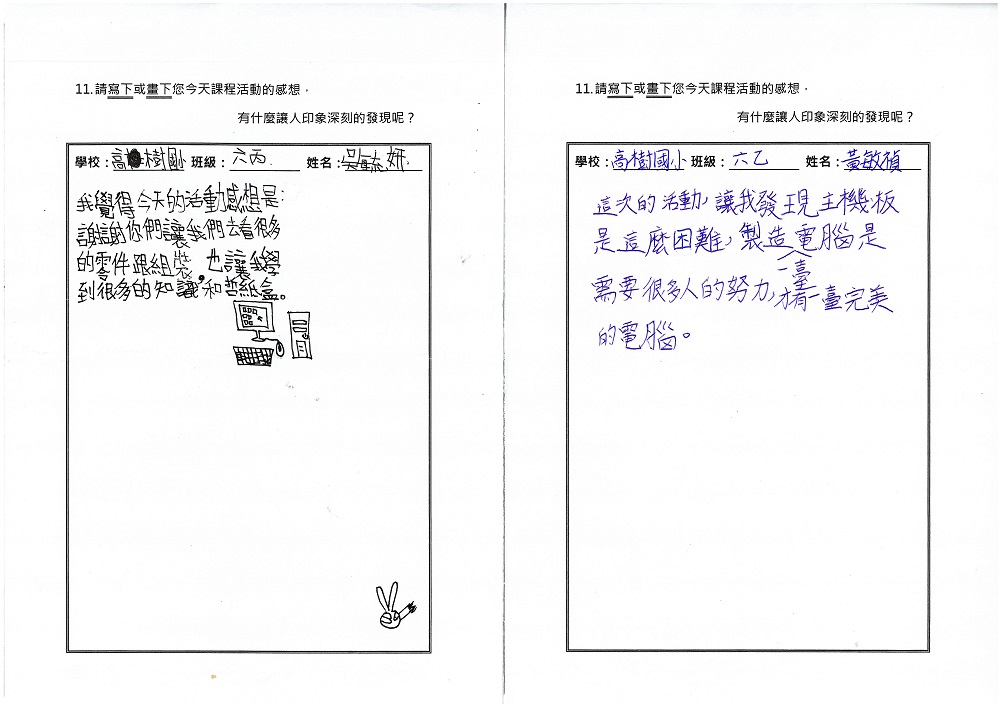 11.請寫下或畫下您今天課程活動的感想，
有什麼讓人印象深刻的發現呢？
學校：高樹國小 班級：六丙. 姓名：吳毓妍.
我覺得今天的活動感想是：
謝謝你們讓我們去看很多
的零件跟組裝。也讓我學
到很多的知識和哲紙盒。
11.請寫下或畫下您今天課程活動的感想，
有什麼讓人印象深刻的發現呢？
學校：高樹國小 班級：六乙 姓名：黃敏禎
這次的活動，讓我發現主機板
是這麼困難，製造一臺電腦是
需要很多人的努力，才有一臺完美
的電腦。